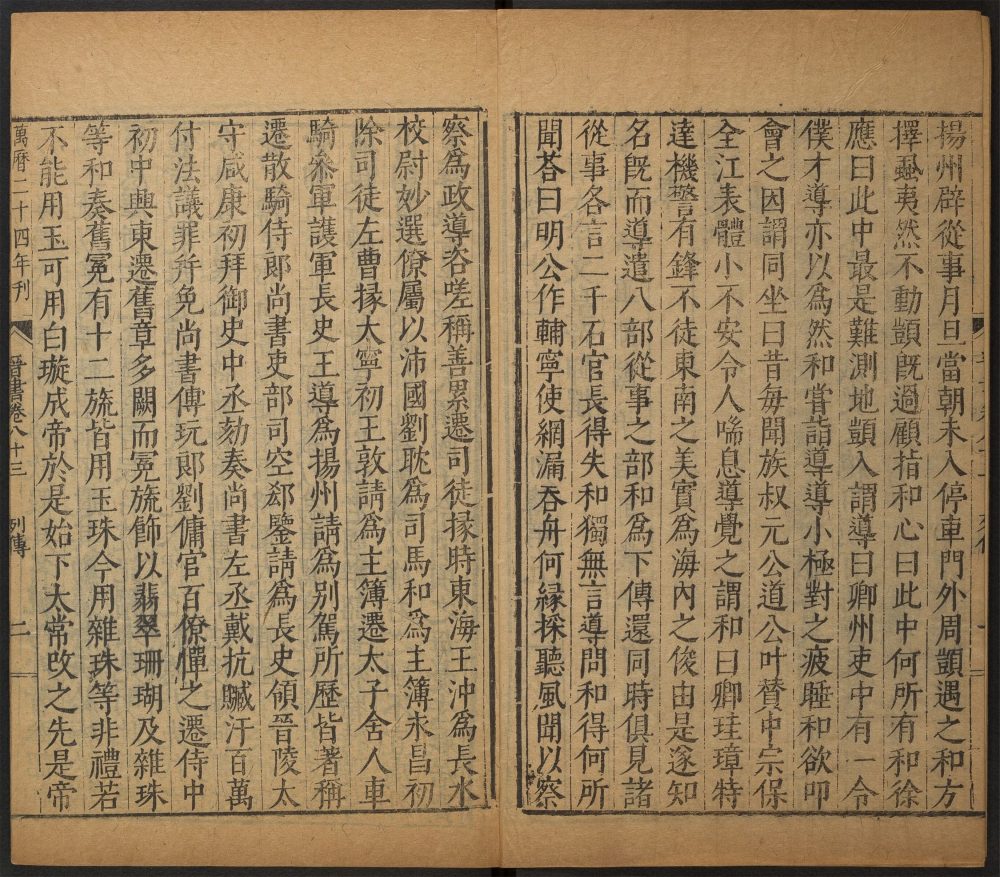 揚州辟從事月旦當朝未入停車門外周顗遇之和方
擇蝨夷然不動顗旣過顧指和心曰此中何所有和徐
應曰此中最是難測地顗入謂導曰卿州吏中有一令
僕才導亦以爲然和嘗詣導導小極對之疲睡和欲叩
會之因謂同坐曰昔每聞族叔元公道公叶贊中宗保
全江表體小不安令人喘息導覺之謂和曰卿珪璋特
達機警有鋒不徒東南之美實爲海內之俊由是遂知
名旣而導遣八部從事之部和爲下傳還同時俱見諸
從事各言二千石官長得失和獨無言導問和得何所
聞荅曰明公作輔寧使網漏吞舟何緣採聽風聞以察
察爲政導咨嗟稱善累遷司徒掾時東海王沖爲長水
校尉妙選僚屬以沛國劉耽爲司馬和爲主簿永昌初
除司徒左曹掾太寧初王敦請爲主簿遷太子舍人車
騎叅軍護軍長史王導爲揚州請爲别駕所歷皆著稱
遷散騎侍郞尚書吏部司空郄鑒請爲長史領晉陵太
守咸康初拜御史中丞劾奏尚書左丞戴抗贓汙百萬
付法議罪幷免尚書傅玩郞劉傭官百僚憚之遷侍中
初中興東遷舊章多闕而冕旒飾以翡翠珊瑚及雜珠
等和奏舊冕有十二旒皆用玉珠今用雜珠等非禮若
不能用玉可用白璇成帝於是始下太常改之先是帝
萬曆二十四年刊 晉書卷八十三 列傳 二